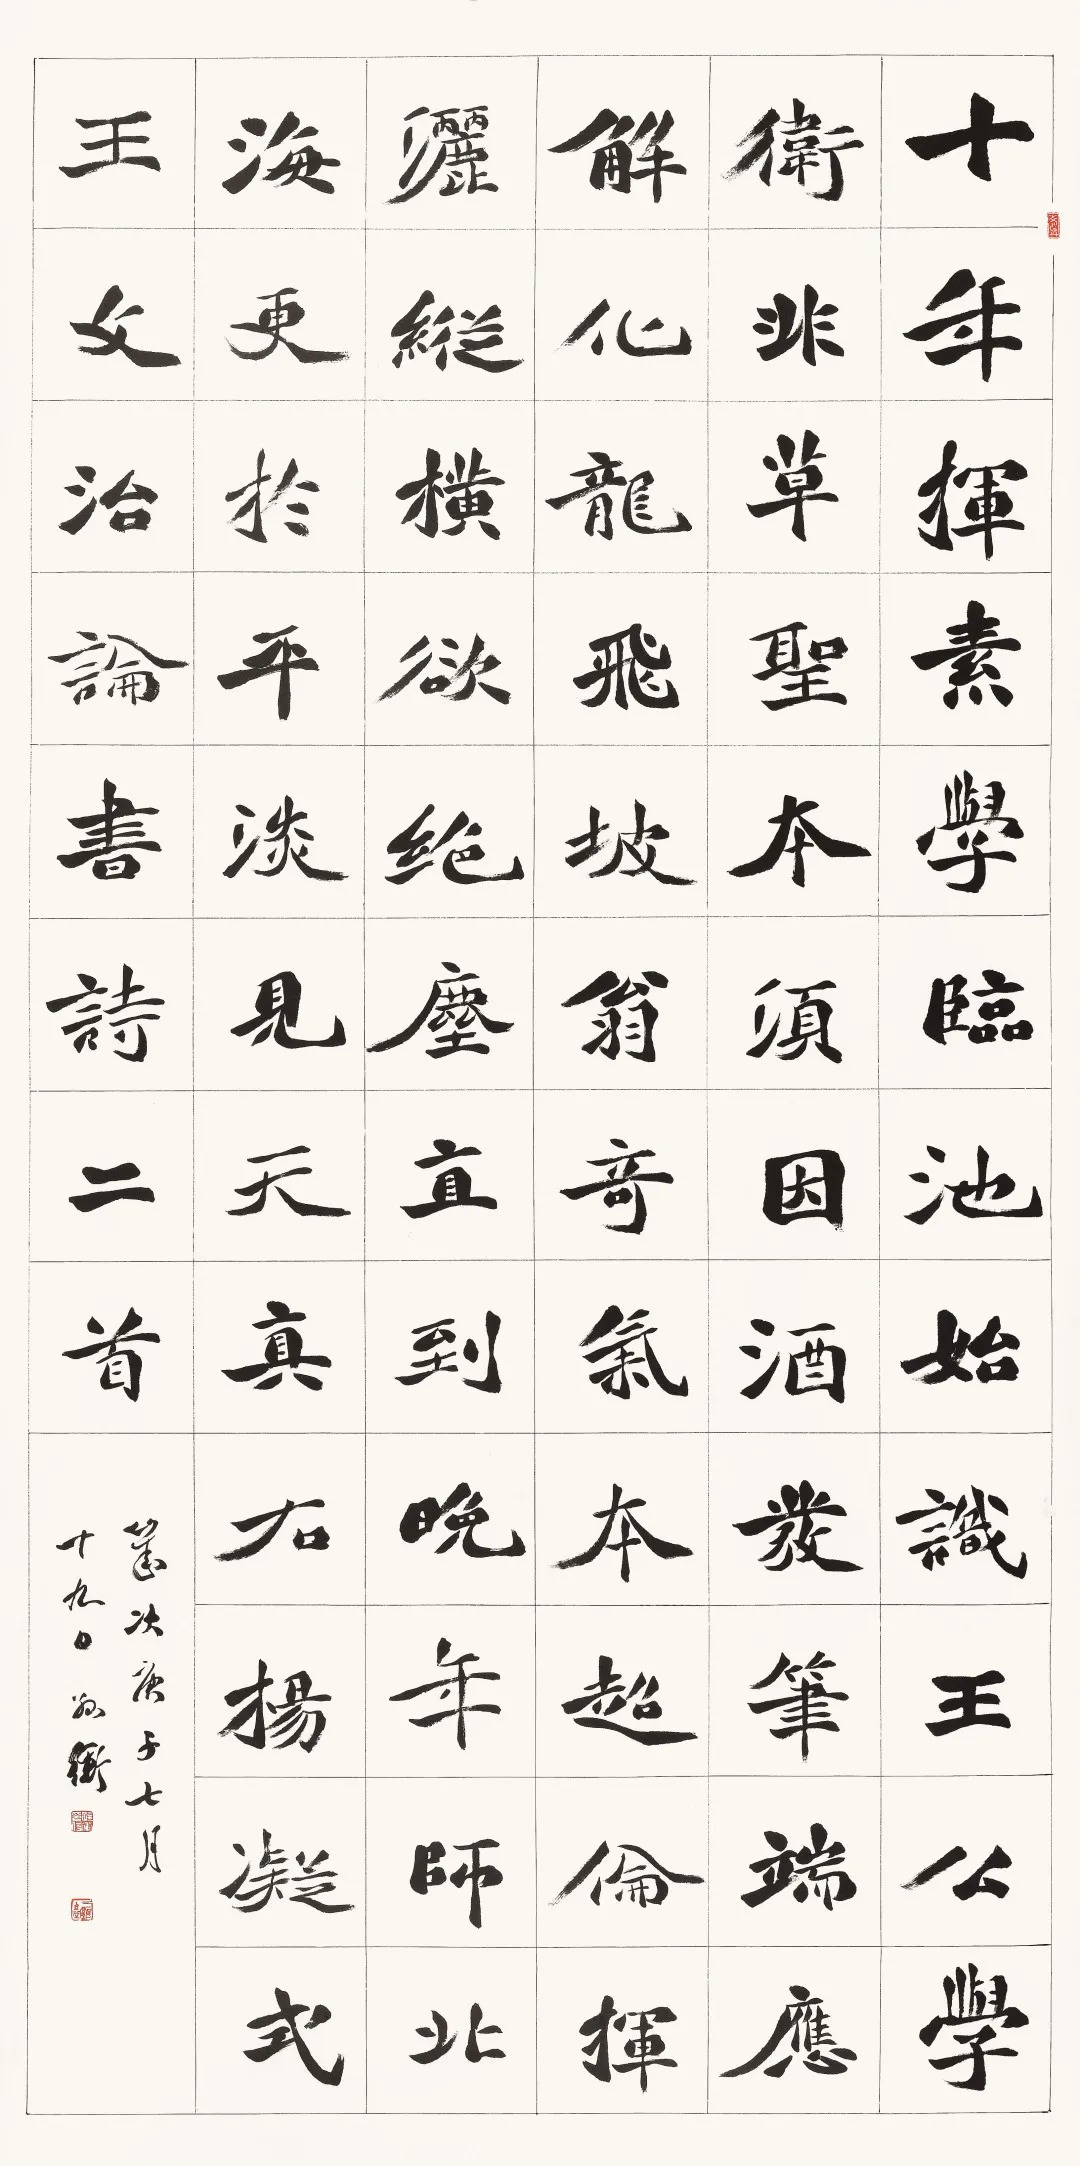 十年揮素學臨池始識王公學
衛非草聖本須因酒發筆端應
解化龍飛坡翁奇氣本超倫揮
灑縱橫欲絶塵直到晚年師北
海更於平淡見天真右揚凝式
王文治論書詩二首
歲次庚子七月
十九日孫